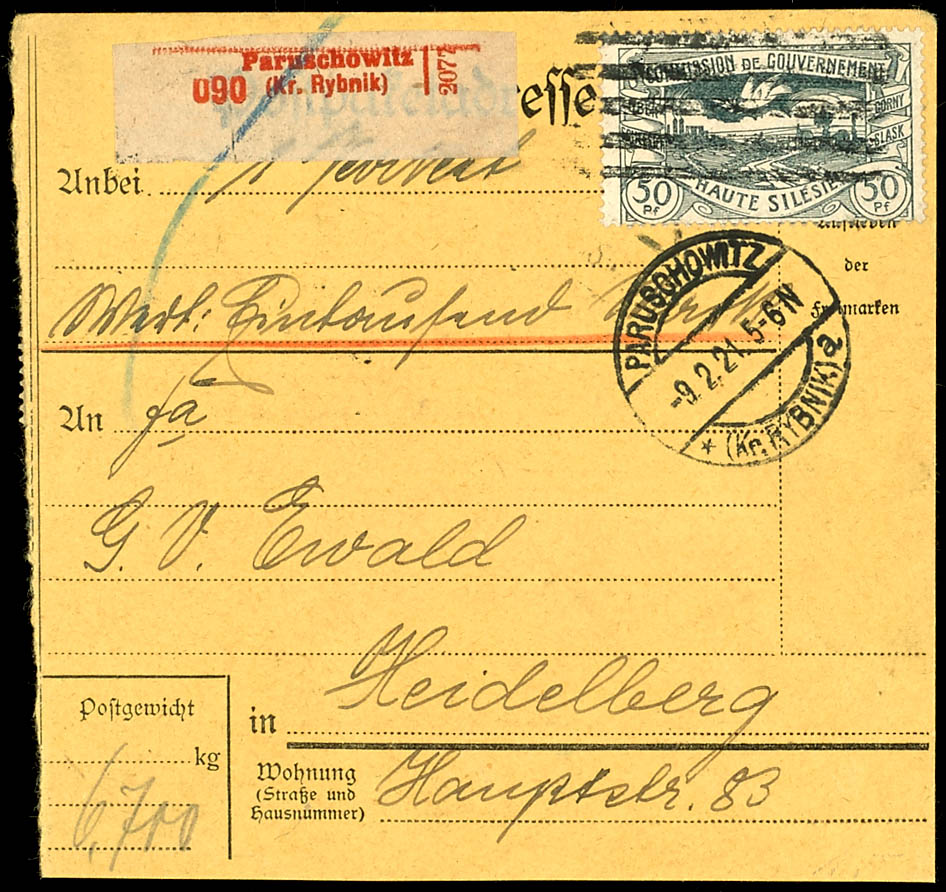 Paruschowitz
090 (Kr. Rybnik)
2077
esse
COMMISSION DE GOUVERNEMENT
GORNY
SLASK
HAUTE SILESIE
50 Pf 50 Pf
Anbei 1
der
Freimarken
Wert: Eintausend
PARUSCHOWITZ
-9.2.21. 5-6 N
* (Kr. RYBNIK) a
An Fa
G. V. Ewald
in Heidelberg
Postgewicht
kg
6,700
Wohnung
(Straße und
Hausnummer)
Hauptstr. 83